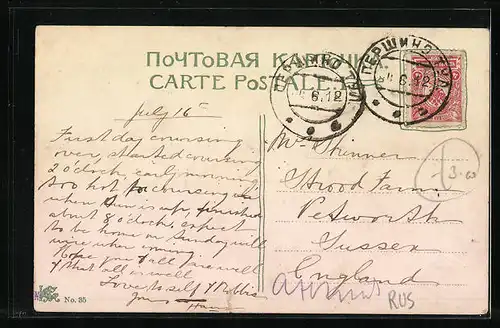 ПОЧТОВАЯ КАРТОЧКА
CARTE POSTALE
ПЕРШИНО ТУЛ
6.12
ПЕРШИНО ТУЛ
6.12
July 16th
First day coursing
over, started coursing
2 o'clock, early morning
too hot for coursing
when Sun is up, finished
about 8 o'clock, expect
to be home on Sunday will
wire when coming.
Hope you all are well
& that all is well
Love to self & Debbis
Mr Skinner
Strood Farm
Petworth
Sussex
England
RUS
No. 35